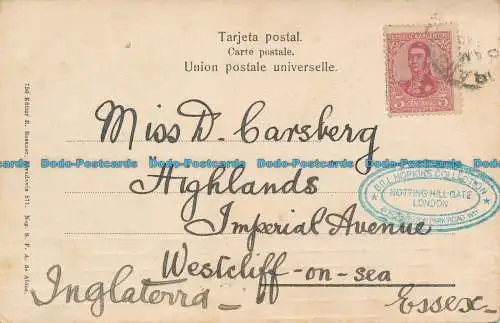 Tarjeta postal.
Carte postale.
Union postale universelle.
Miss D. Carsberg
Highlands
Imperial Avenue
Westcliff-on-sea
Inglaterra
Essex
BILL HOPKINS COLLECTION
NOTTING HILL GATE
LONDON
Dodo-Postcards Dodo-Postcards Dodo-Postcards Dodo-Postcards Dodo-Postcards